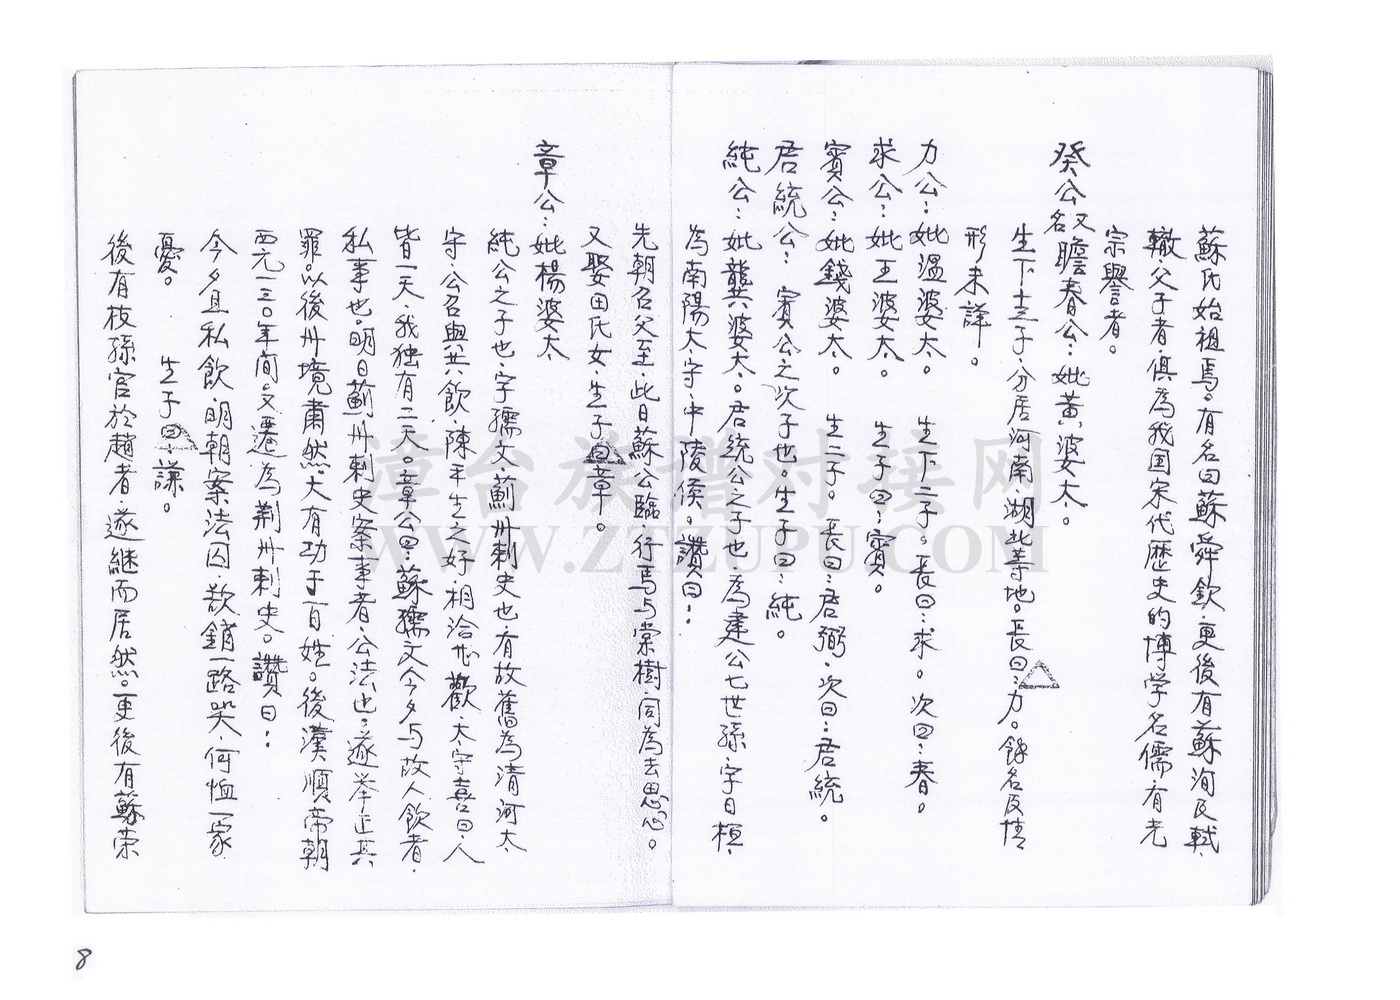 蘇氏始祖焉。有名曰蘇舜欽、更後有蘇洵及軾、
轍父子者、俱為我国宋代歷史的博学名儒有光
宗譽者。
癸公又名瞻春公：妣黃婆太。
生下十三子、分居河南、湖北等地。長曰：力。餘名及情
形未詳。
力公：妣溫婆太。 生下二子。長曰：求。次曰：春。
求公：妣王婆太。 生子曰：賓。
賓公：妣錢婆太。 生二子。長曰：居弼、次曰：居統。
居統公：賓公之次子也。生子曰：純。
純公：妣龔婆太。居統公之子也為建公七世孫、字日桓、
為南陽太守、中陵侯。讚曰：
先朝名父至、此日蘇公臨、行馬与棠樹、同為去思心。
又娶田氏女、生子曰章。
章公：妣楊婆太
純公之子也、字孺文、薊州刺史也、有故舊為清河太
守、公召與共飲、陳平生之好、相洽甚歡、太守喜曰、人
皆一天、我独有二天。章公曰：蘇孺文今夕与故人飲者、
私事也。明日薊州刺史案事者、公法也。遂举正其
罪。以後州境肅然、大有功于百姓。後漢順帝朝
西元一三〇年間。又遷為荆州刺史。讚曰：
今夕且私飲、明朝案法囚、欲銷一路哭、何恤一家
憂。 生子曰：謙。
後有枝孫官於趙者、遂継而居然。更後有蘇荣
漳台族谱对接网
WWW.ZTZUPU.COM
8